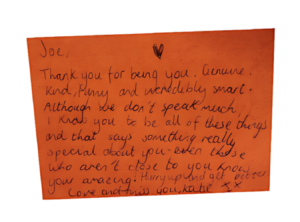 Joe,
Thank you for being you. Genuine.
Kind, Funny and incredibly smart.
Although we don't speak much
I know you to be all of these things
and that says something really
special about you - even those
who aren't close to you know
your amazing. Hurry up and get better
Love and miss you, Katie xx